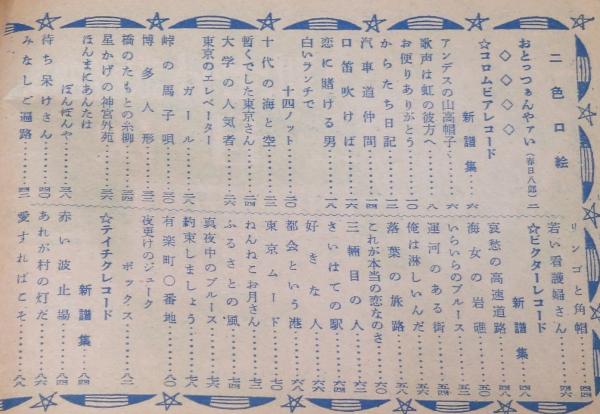 二色口絵
おとっつぁんヤァい(春日八郎)…二
◇◇◇◇
☆コロムビアレコード
新譜集…六
アンデスの山高帽子…六
歌声は虹の彼方へ…八
お便りありがとう…一〇
からたち日記…一二
汽車道仲間…一四
口笛吹けば…一六
恋に賭ける男…一八
白いランチで
十四ノット…二〇
十代の海と空…二二
暫くでした東京さん…二四
大学の人気者…二六
東京のエレベーター
ガール…二八
峠の馬子唄…三〇
博多人形…三二
橋のたもとの糸柳…三四
星かげの神宮外苑…三六
ほんまにあんたは
ぼんぼんや…三八
待ち呆けさん…四〇
みなしご遍路…四二
リンゴと角帽…四四
若い看護婦さん…四六
☆ビクターレコード
新譜集…四八
哀愁の高速道路…四八
海女の岩礁…五〇
いらいらのブルース…五二
運河のある街…五四
俺は淋しいんだ…五六
落葉の旅路…五八
これが本当の恋なのさ…六〇
三輛目の人…六二
さいはての駅…六四
好きな人…六六
都会という港…六八
東京ムード…七〇
ねんねこお月さん…七二
ふるさとの風…七四
真夜中のブルース…七六
約束しましょう…七八
有楽町〇番地…八〇
夜更けのジューク
ボックス…八二
☆テイチクレコード
新譜集…八四
赤い波止場…八四
あれが村の灯だ…八六
愛すればこそ…八八